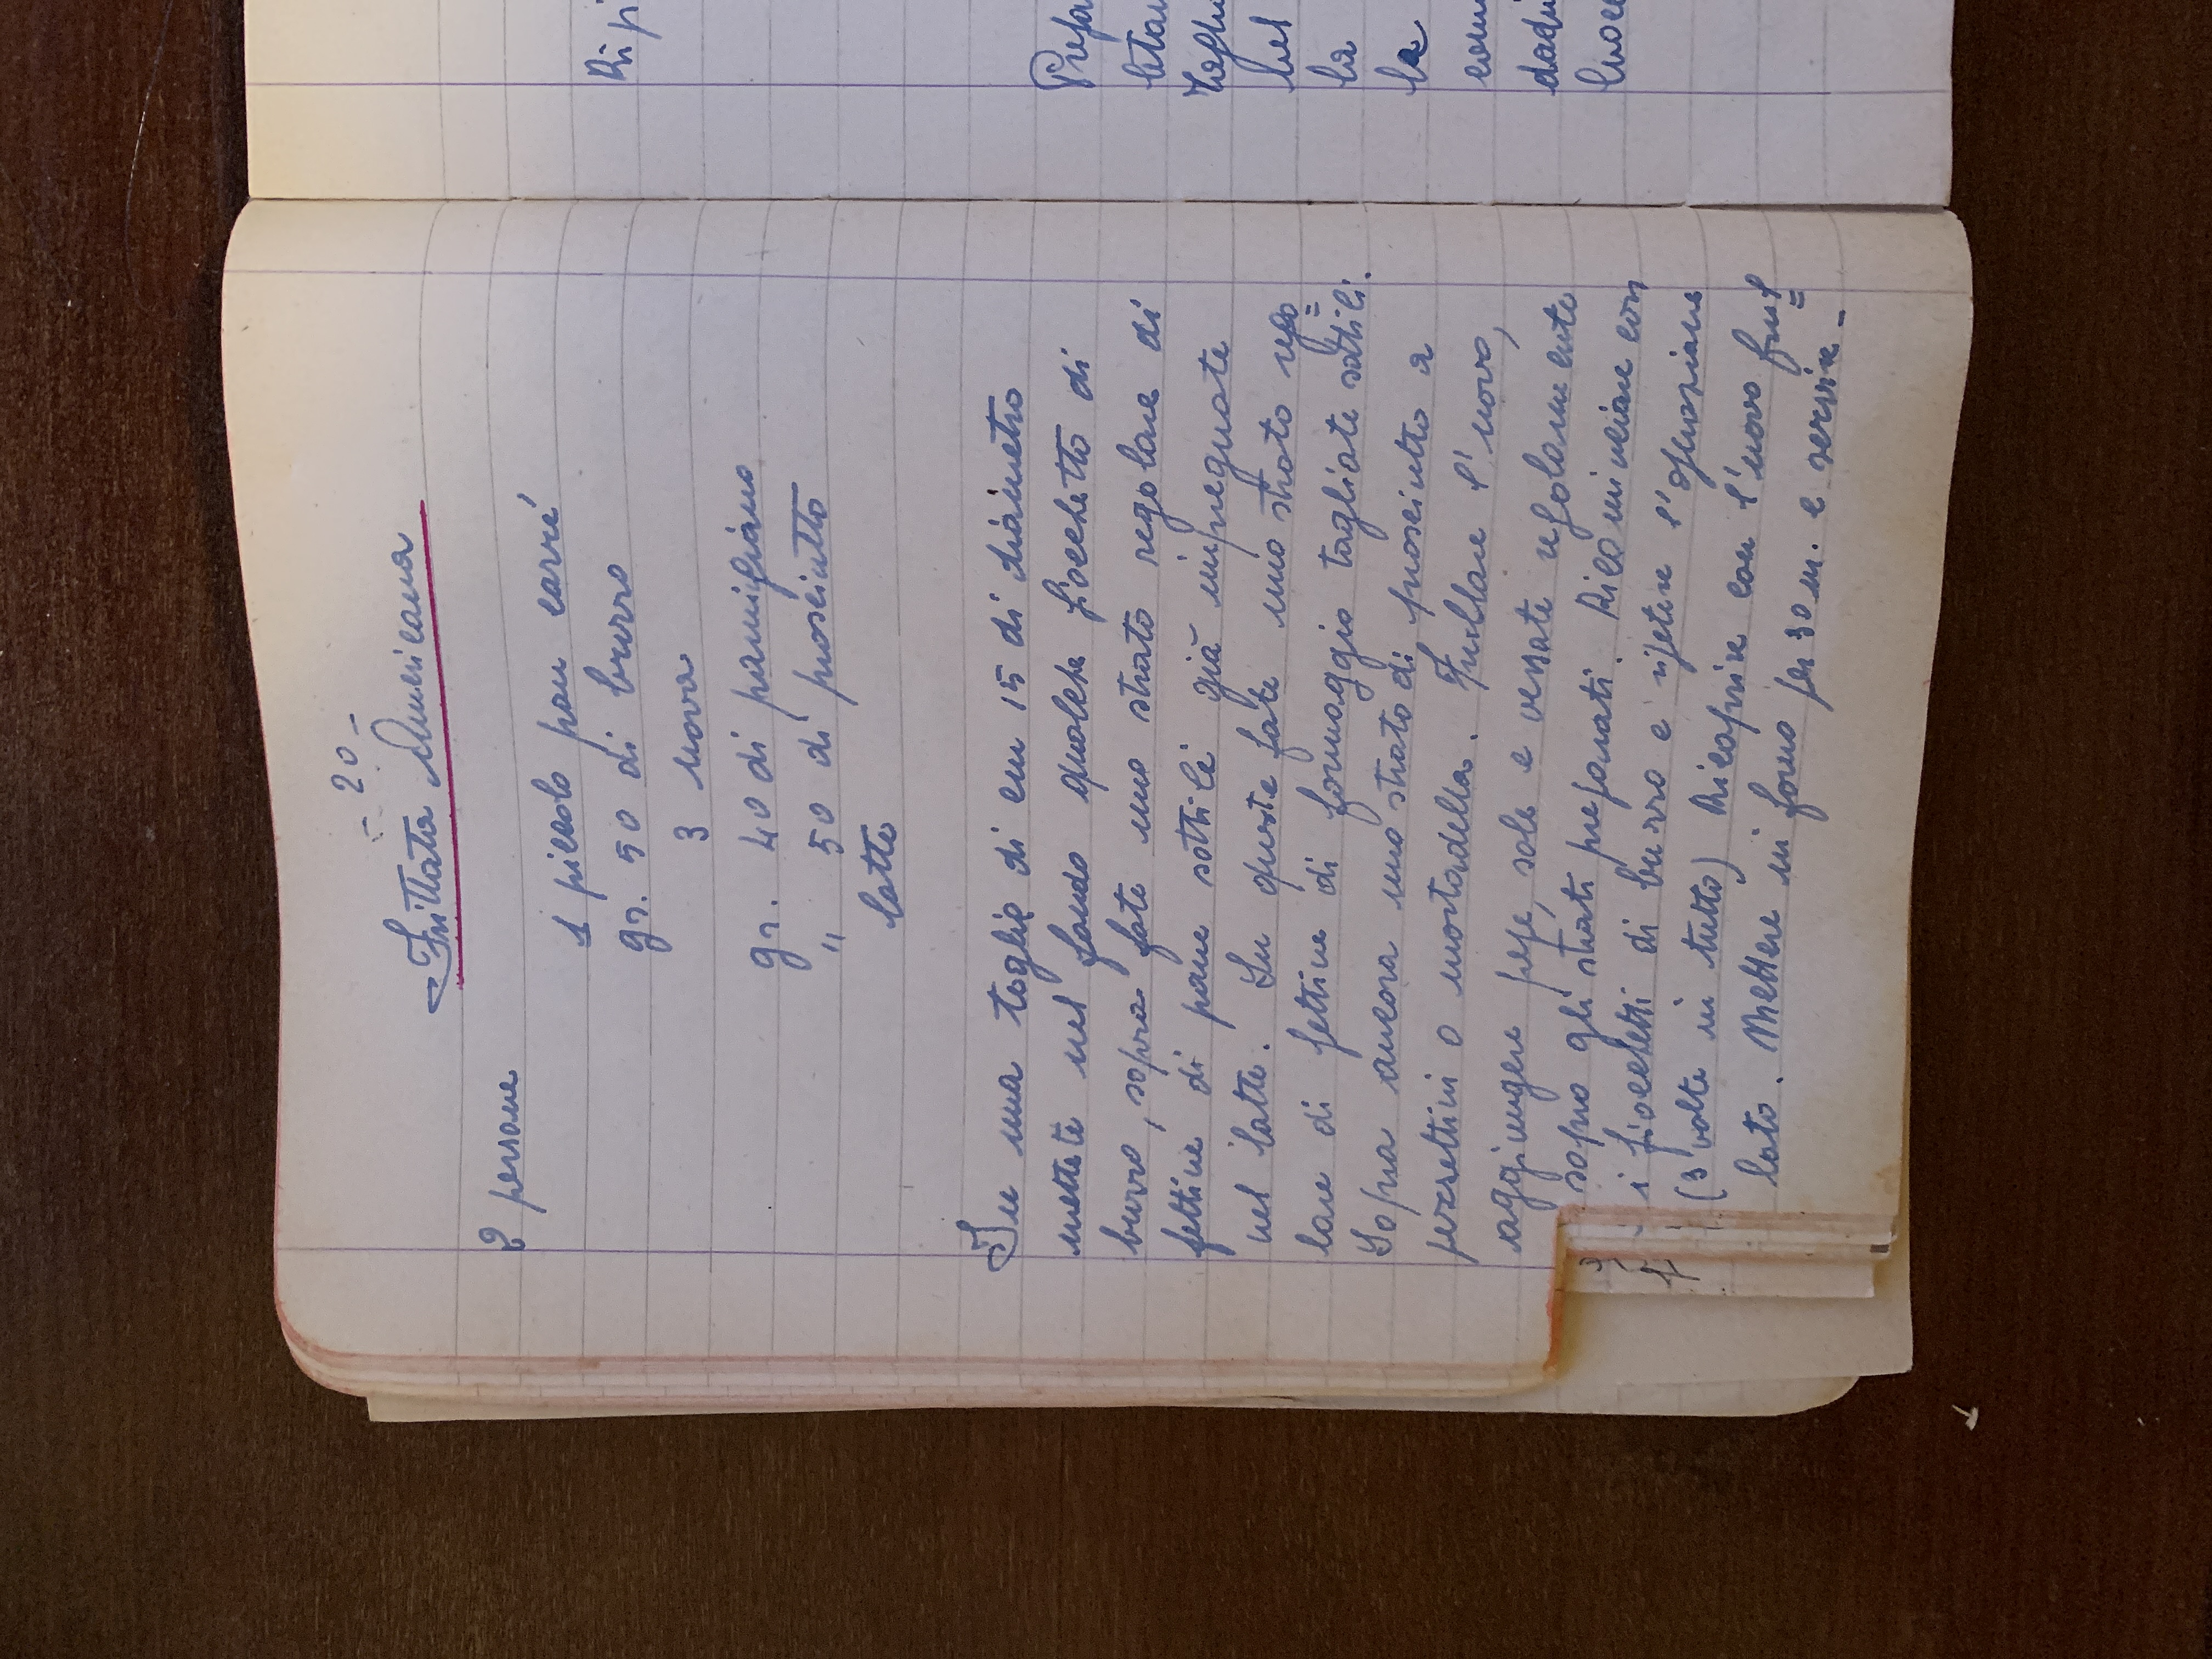 - 20 -
Frittata Americana
2 persone
1 piccolo pan carré
gr. 50 di burro
3 uova
gr. 40 di parmigiano
" 50 di prosciutto
latte
In una teglie di cm 15 di diametro
mettete nel fondo qualche fiocchetto di
burro, sopra fate uno strato regolare di
fettine di pane sottili già impregnate
nel latte. Su queste fate uno strato rego=
lare di fettine di formaggio tagliate sottili.
Sopra ancora uno strato di prosciutto a
pezzettini o mortadella. Frullare l'uovo,
aggiungere pepe, sale e versate regolarmente
sopra gli strati preparati. Ricominciare con
i fiocchetti di burro e ripetere l'operazione
(3 volte in tutto) Ricoprire con l'uovo frul=
lato. Mettere in forno per 30 m. e servire -
Prepa
Taglia
nel
la
la
com
dadi